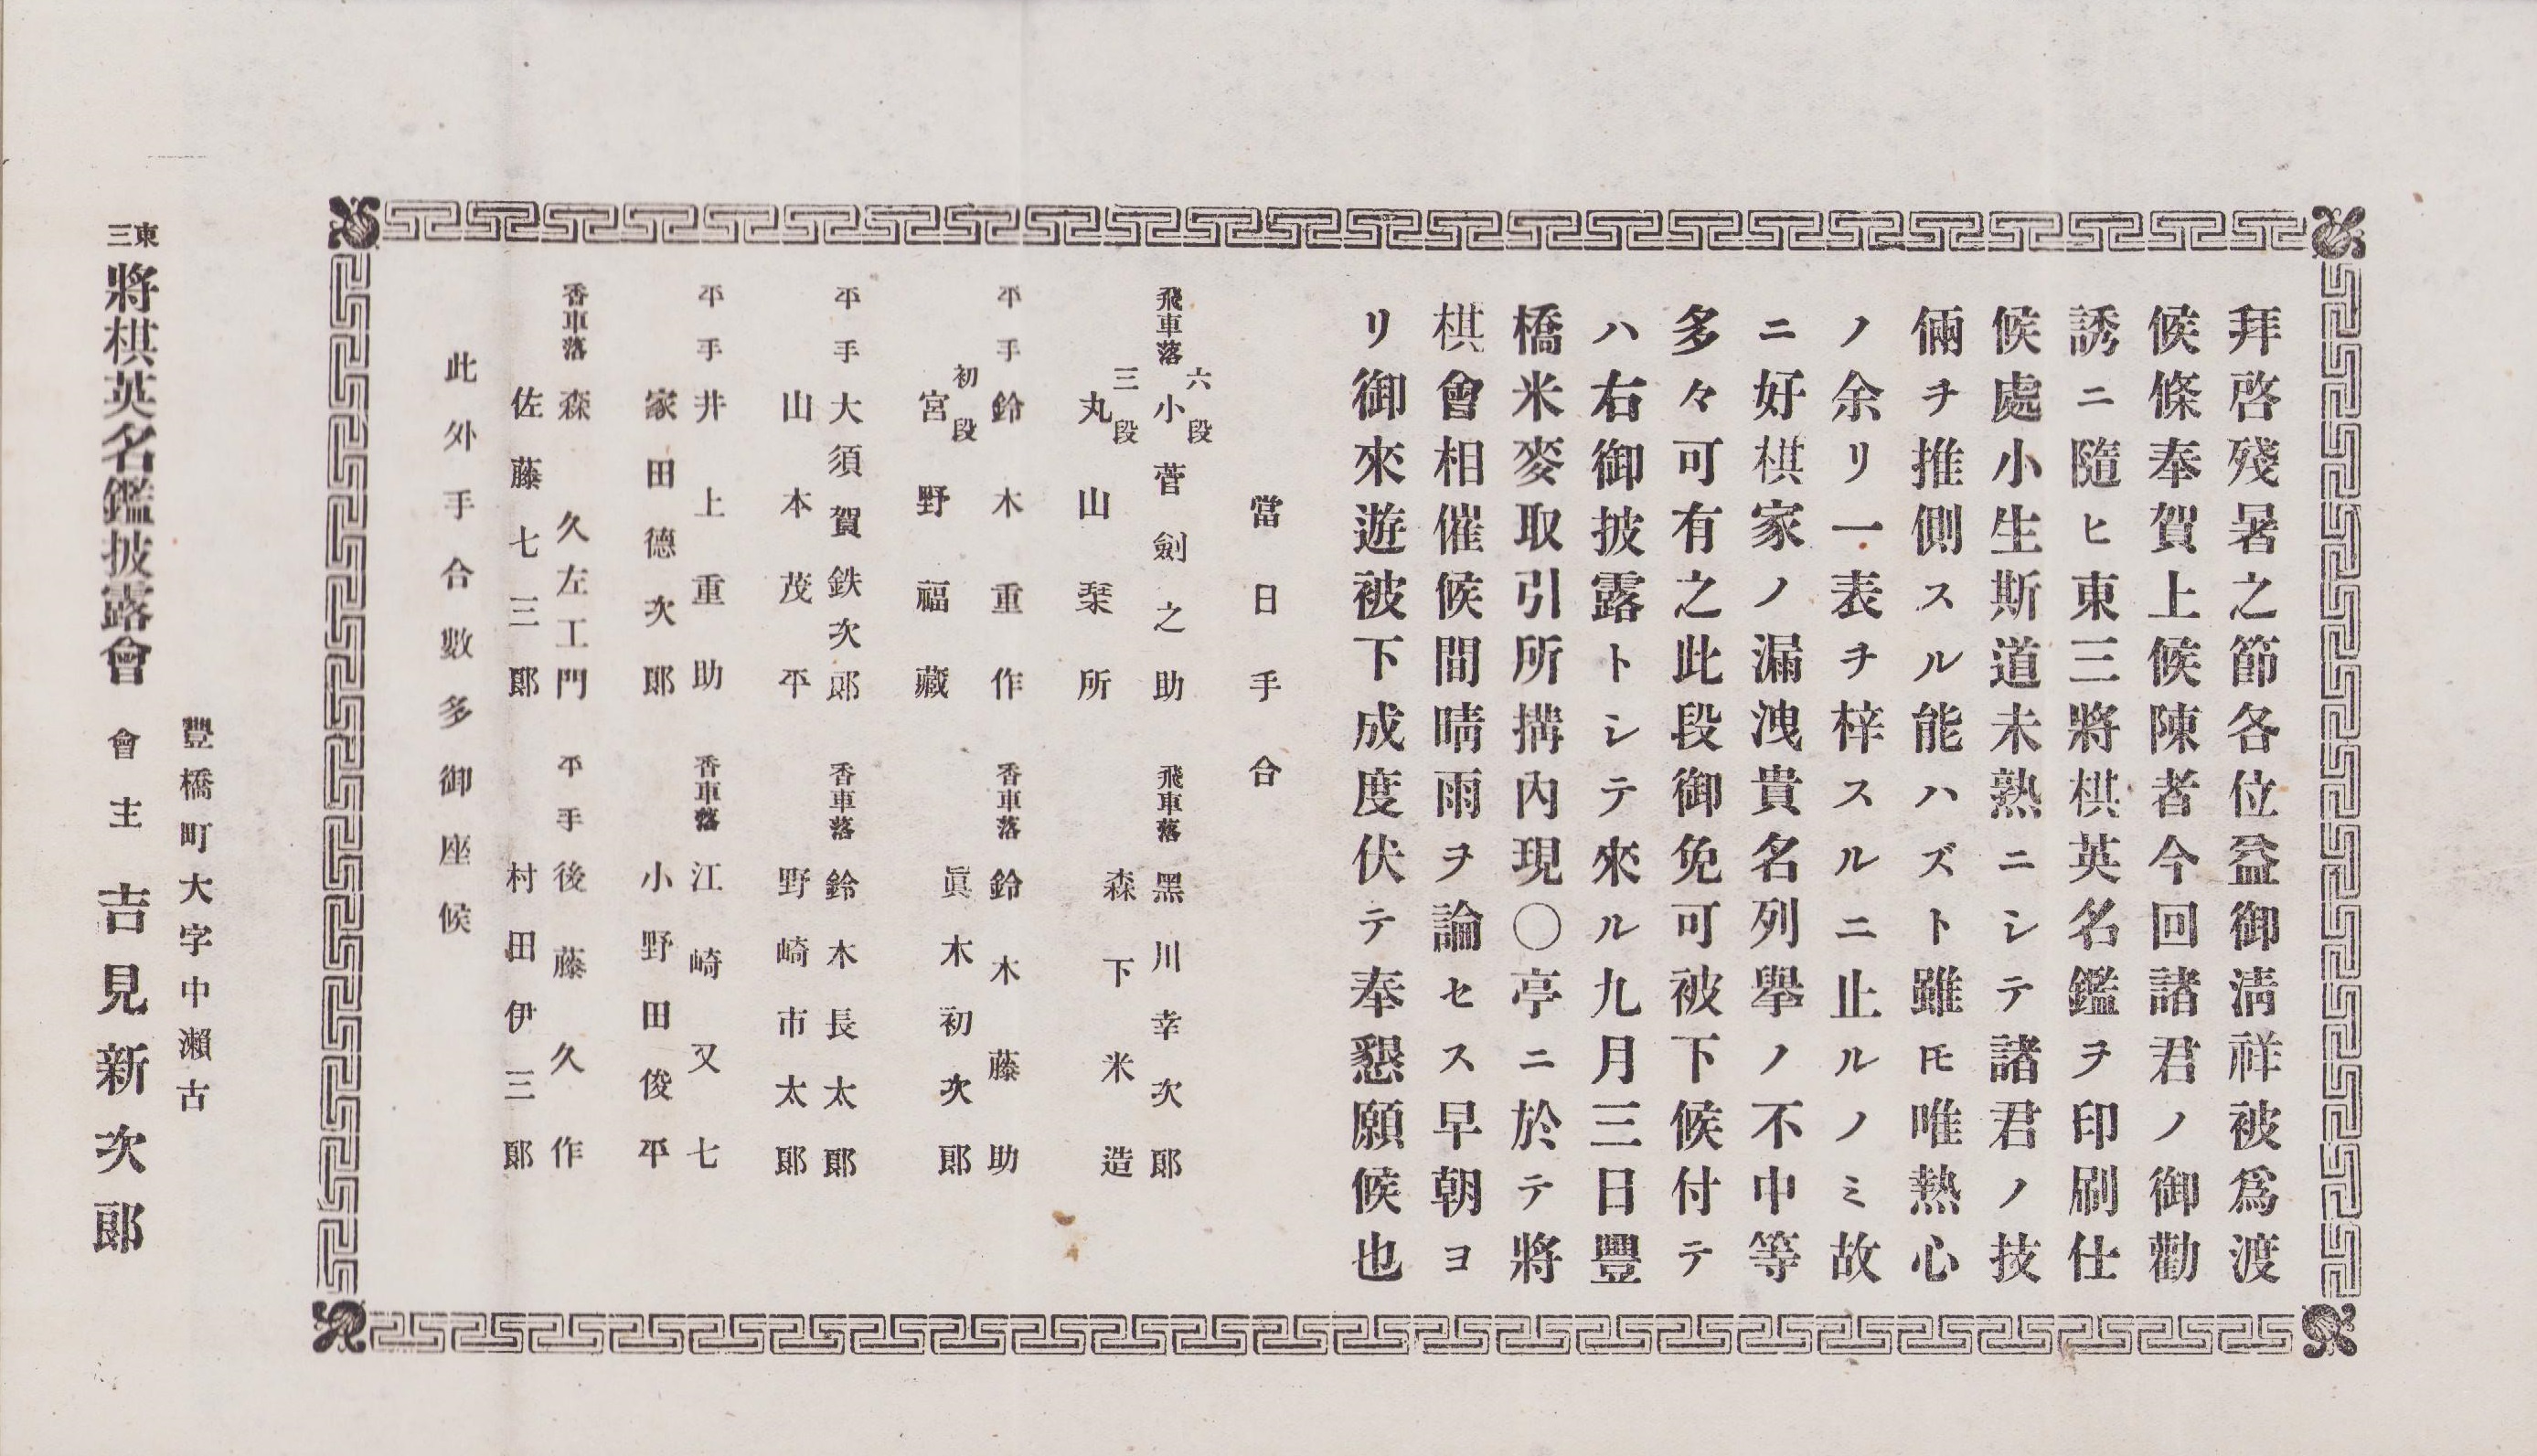 拜啓殘暑之節各位益御淸祥被爲渡
候條奉賀上候陳者今回諸君ノ御勸
誘ニ隨ヒ東三將棋英名鑑ヲ印刷仕
候處小生斯道未熟ニシテ諸君ノ技
倆ヲ推側スル能ハズト雖𪜈唯熱心
ノ余リ一表ヲ梓スルニ止ルノミ故
ニ好棋家ノ漏洩貴名列擧ノ不中等
多々可有之此段御免可被下候付テ
ハ右御披露トシテ來ル九月三日豐
橋米麥取引所搆內現〇亭ニ於テ將
棋會相催候間晴雨ヲ論セス早朝ヨ
リ御來遊被下成度伏テ奉懇願候也
當日手合
飛車落 六段 小菅劍之助
三段 丸山栞所
飛車落 黑川幸次郞
森下米造
平手 鈴木重作
初段 宮野福藏
香車落 鈴木藤助
眞木初次郞
平手 大須賀鉄次郞
山本茂平
香車落 鈴木長太郞
野崎市太郞
平手 井上重助
家田德次郞
香車落 江崎又七
小野田俊平
香車落 森久左工門
佐藤七三郞
平手 後藤久作
村田伊三郞
此外手合數多御座候
豐橋町大字中瀨古
東三將棋英名鑑披露會 會主 吉見新次郞